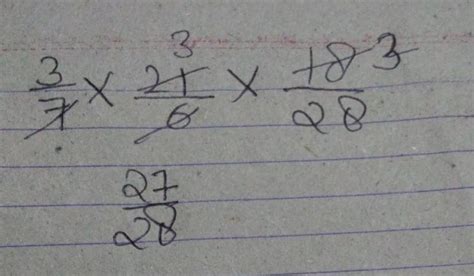 3
3/7 × 21/6 × 18/28 3
27/28